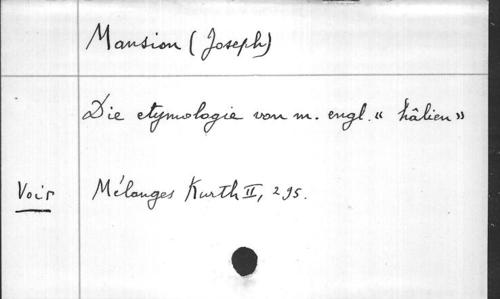 Mansion (Joseph)
Die etymologie von m. engl. « hâlien »
Voir Mélanges Kurth II, 295.